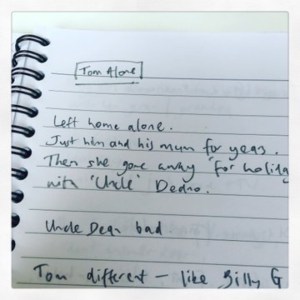 Tom Alone
Left home alone.
Just him and his mum for years.
Then she gone away 'for holiday
with 'Uncle'
Uncle Dean bad
Tom different - like Billy G